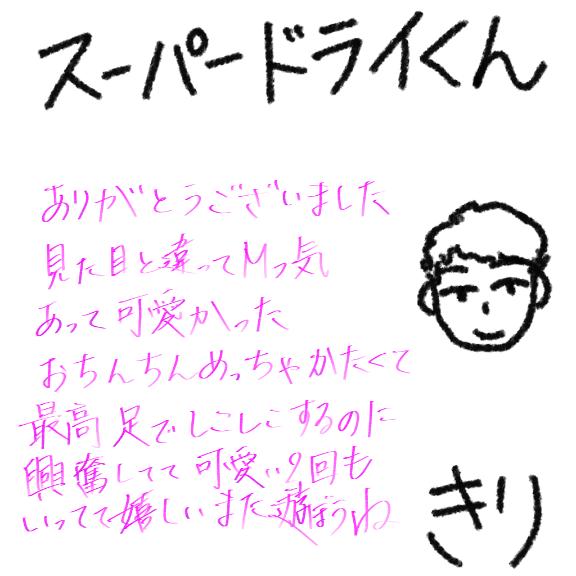 スーパードライくん
ありがとうございました
見た目と違ってMっ気
あって可愛かった
おちんちんめっちゃかたくて
最高足でしこしこするのに
興奮してて可愛い9回も
いってて嬉しいまた遊ぼうね
きり